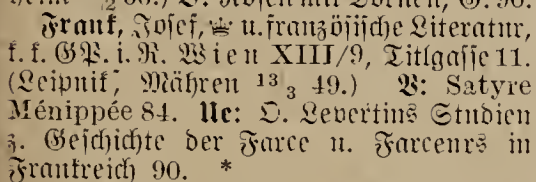 Frank, Josef, u. französische Literatur,
k. k. GP. i. R. Wien XIII/9, Titlgasse 11.
(Leipnik, Mähren 13/3 49.) V: Satyre
Ménippée 84. Ue: O. Levertins Studien
z. Geschichte der Farce u. Farceurs in
Frankreich 90. *